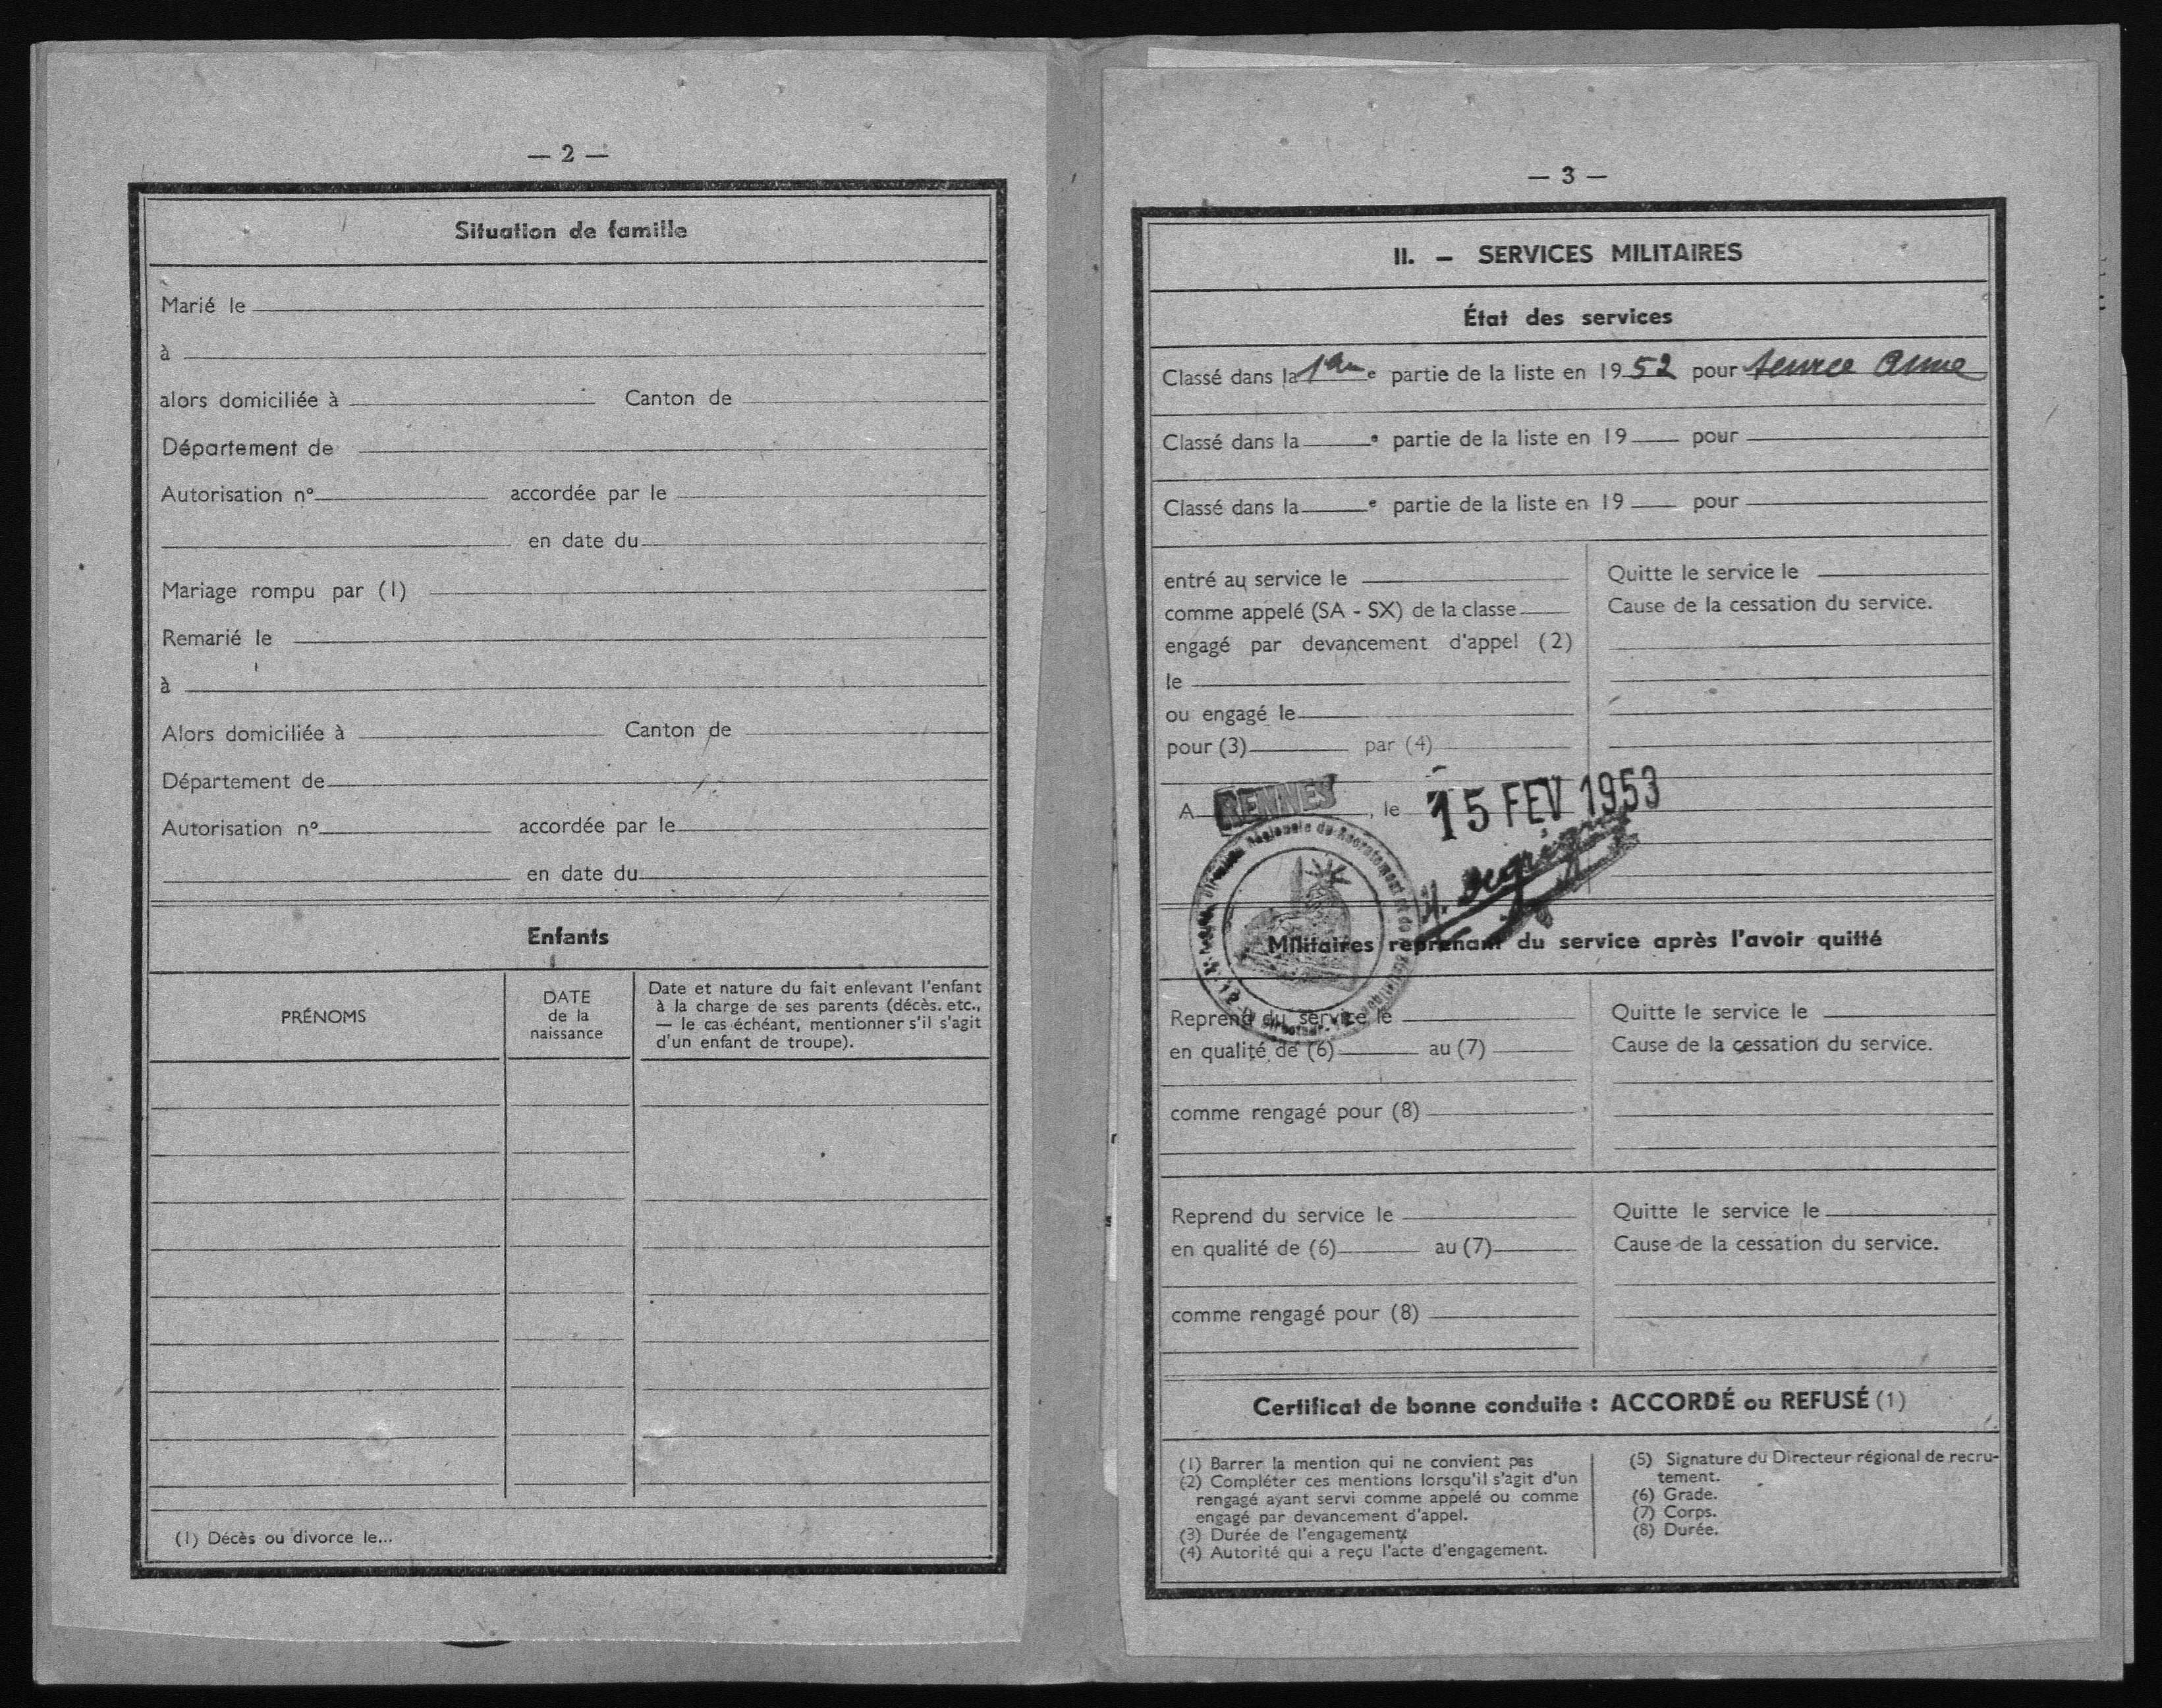 — 2 —
Situation de famille
Marié le
à
alors domiciliée à Canton de
Département de
Autorisation n° accordée par le
en date du
Mariage rompu par (1)
Remarié le
à
Alors domiciliée à Canton de
Département de
Autorisation n° accordée par le
en date du
Enfants
PRÉNOMS
DATE
de la
naissance
Date et nature du fait enlevant l'enfant
à la charge de ses parents (décès, etc.,
— le cas échéant, mentionner s'il s'agit
d'un enfant de troupe).
(1) Décès ou divorce le...
— 3 —
II. — SERVICES MILITAIRES
État des services
Classé dans la e partie de la liste en 1952 pour
Classé dans la e partie de la liste en 19 pour
Classé dans la e partie de la liste en 19 pour
entré au service le
comme appelé (SA - SX) de la classe
engagé par devancement d'appel (2)
le
ou engagé le
pour (3) par (4)
Quitte le service le
Cause de la cessation du service.
A RENNES, le 15 FEV 1953
Militaires reprenant du service après l'avoir quitté
Reprend du service le
en qualité de (6) au (7)
comme rengagé pour (8)
Quitte le service le
Cause de la cessation du service.
Reprend du service le
en qualité de (6) au (7)
comme rengagé pour (8)
Quitte le service le
Cause de la cessation du service.
Certificat de bonne conduite : ACCORDÉ ou REFUSÉ (1)
(1) Barrer la mention qui ne convient pas
(2) Compléter ces mentions lorsqu'il s'agit d'un
rengagé ayant servi comme appelé ou comme
engagé par devancement d'appel.
(3) Durée de l'engagement
(4) Autorité qui a reçu l'acte d'engagement.
(5) Signature du Directeur régional de recru-
tement.
(6) Grade.
(7) Corps.
(8) Durée.